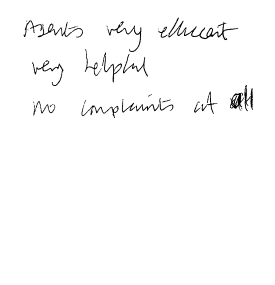 Agents very efficient
very helpful
no complaints at all